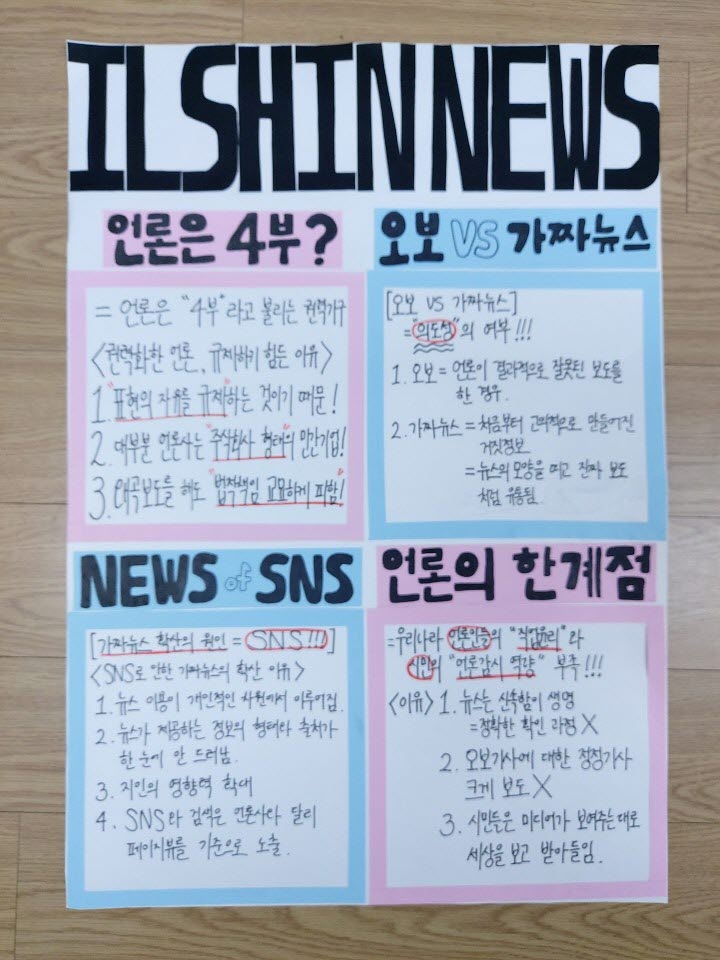 ILSHIN NEWS
언론은 4부?
= 언론은 "4부"라고 불리는 권력기구
<권력화한 언론, 규제하기 힘든 이유>
1. "표현의 자유를 규제"하는 것이기 때문!
2. 대부분 언론사는 "주식회사 형태"의 민간기업!
3. 왜곡보도를 해도 "법적책임 교묘하게 피함!"
오보 VS 가짜뉴스
[오보 VS 가짜뉴스]
= "의도성"의 여부!!!
1. 오보 = 언론이 결과적으로 잘못된 보도를
한 경우.
2. 가짜뉴스 = 처음부터 고의적으로 만들어진
거짓정보
= 뉴스의 모양을 띠고 진짜 보도
처럼 유통됨.
NEWS of SNS
[가짜뉴스 확산의 원인 = SNS!!!]
<SNS로 인한 가짜뉴스의 확산 이유>
1. 뉴스 이용이 개인적인 차원에서 이루어짐.
2. 뉴스가 제공하는 정보의 형태와 출처가
한 눈에 안 드러남.
3. 지인의 영향력 확대
4. SNS와 검색은 언론사와 달리
페이지뷰를 기준으로 노출.
언론의 한계점
=우리나라 언론인들의 "직업윤리"와
시민의 "언론감시 역량" 부족!!!
<이유> 1. 뉴스는 신속함이 생명
=정확한 확인 과정 X
2. 오보기사에 대한 정정기사
크게 보도 X
3. 시민들은 미디어가 보여주는 대로
세상을 보고 받아들임.